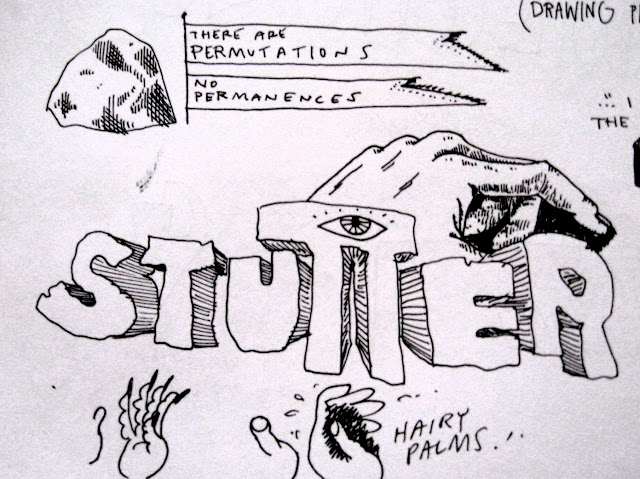 (DRAWING
THERE ARE
PERMUTATIONS
NO
PERMANENCES
THE
STUTTER
HAIRY
PALMS...